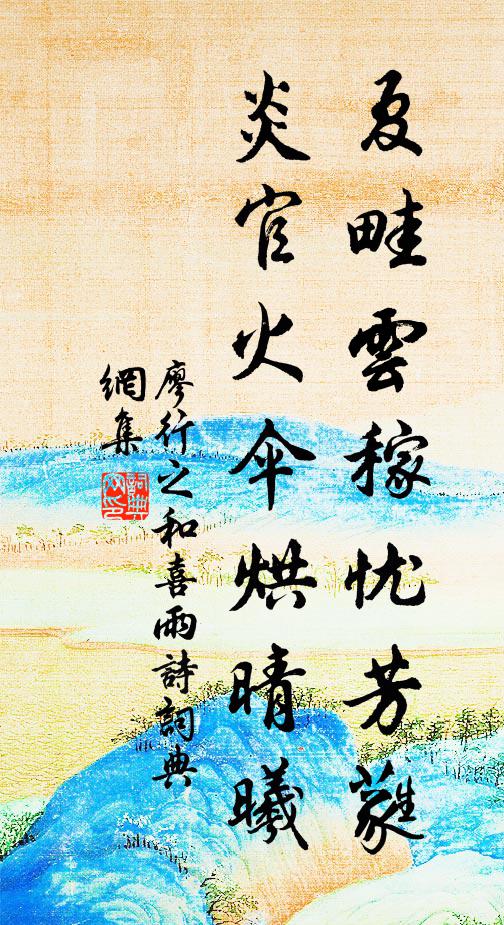 夏畦雲稼忧芳蕤
炎官火伞烘晴曦
廖行之和喜雨詩詞典
網集
詞典网印